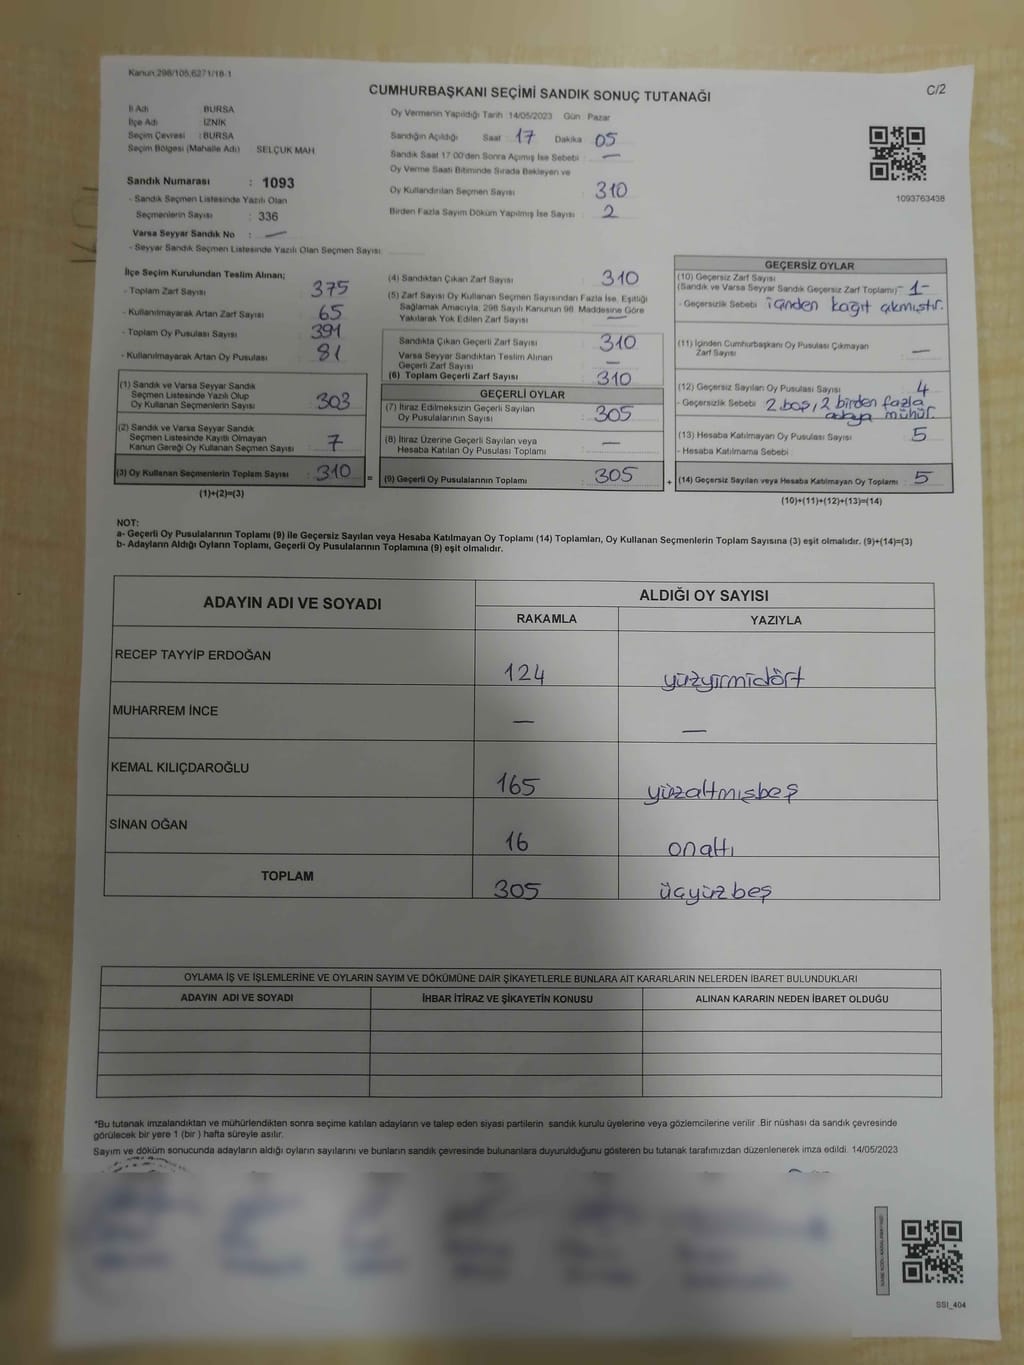 Kanun 298/105,6271/18-1
C/2
CUMHURBAŞKANI SEÇİMİ SANDIK SONUÇ TUTANAĞI
İl Adı BURSA
İlçe Adı İZNİK
Seçim Çevresi : BURSA
Seçim Bölgesi (Mahalle Adı) SELÇUK MAH.
Sandık Numarası : 1093
- Sandık Seçmen Listesinde Yazılı Olan
Seçmenlerin Sayısı : 336
Varsa Seyyar Sandık No : —
- Seyyar Sandık Seçmen Listesinde Yazılı Olan Seçmen Sayısı:
Oy Vermenin Yapıldığı Tarih :14/05/2023 Gün : Pazar
Sandığın Açıldığı Saat : 17 Dakika : 05
Sandık Saat 17.00'den Sonra Açılmış İse Sebebi : —
Oy Verme Saati Bitiminde Sırada Bekleyen ve
Oy Kullandırılan Seçmen Sayısı : 310
Birden Fazla Sayım Döküm Yapılmış İse Sayısı : 2
1093763438
İlçe Seçim Kurulundan Teslim Alınan;
- Toplam Zarf Sayısı : 375
- Kullanılmayarak Artan Zarf Sayısı : 65
- Toplam Oy Pusulası Sayısı : 391
- Kullanılmayarak Artan Oy Pusulası : 81
(1) Sandık ve Varsa Seyyar Sandık
Seçmen Listesinde Yazılı Olup
Oy Kullanan Seçmenlerin Sayısı : 303
(2) Sandık ve Varsa Seyyar Sandık
Seçmen Listesinde Kayıtlı Olmayan
Kanun Gereği Oy Kullanan Seçmen Sayısı : 7
(3) Oy Kullanan Seçmenlerin Toplam Sayısı : 310
(1)+(2)=(3)
(4) Sandıktan Çıkan Zarf Sayısı : 310
(5) Zarf Sayısı Oy Kullanan Seçmen Sayısından Fazla İse, Eşitliği
Sağlamak Amacıyla, 298 Sayılı Kanunun 98. Maddesine Göre
Yakılarak Yok Edilen Zarf Sayısı : —
Sandıkta Çıkan Geçerli Zarf Sayısı : 310
Varsa Seyyar Sandıktan Teslim Alınan
Geçerli Zarf Sayısı : —
(6) Toplam Geçerli Zarf Sayısı : 310
GEÇERLİ OYLAR
(7) İtiraz Edilmeksizin Geçerli Sayılan
Oy Pusulalarının Sayısı : 305
(8) İtiraz Üzerine Geçerli Sayılan veya
Hesaba Katılan Oy Pusulası Toplamı : —
= (9) Geçerli Oy Pusulalarının Toplamı : 305
GEÇERSİZ OYLAR
(10) Geçersiz Zarf Sayısı
(Sandık ve Varsa Seyyar Sandık Geçersiz Zarf Toplamı) : 1-
- Geçersizlik Sebebi : içinden kağıt çıkmıştır.
(11) İçinden Cumhurbaşkanı Oy Pusulası Çıkmayan
Zarf Sayısı : —
(12) Geçersiz Sayılan Oy Pusulası Sayısı : 4
- Geçersizlik Sebebi : 2 boş, 2 birden fazla
adaya mühür.
(13) Hesaba Katılmayan Oy Pusulası Sayısı : 5
- Hesaba Katılmama Sebebi :
+ (14) Geçersiz Sayılan veya Hesaba Katılmayan Oy Toplamı : 5
(10)+(11)+(12)+(13)=(14)
NOT:
a- Geçerli Oy Pusulalarının Toplamı (9) ile Geçersiz Sayılan veya Hesaba Katılmayan Oy Toplamı (14) Toplamları, Oy Kullanan Seçmenlerin Toplam Sayısına (3) eşit olmalıdır. (9)+(14)=(3)
b- Adayların Aldığı Oyların Toplamı, Geçerli Oy Pusulalarının Toplamına (9) eşit olmalıdır.
ADAYIN ADI VE SOYADI ALDIĞI OY SAYISI
RAKAMLA YAZIYLA
RECEP TAYYİP ERDOĞAN 124 yüzyirmidört
MUHARREM İNCE — —
KEMAL KILIÇDAROĞLU 165 yüzaltmışbeş
SİNAN OĞAN 16 onaltı
TOPLAM 305 üçyüzbeş
OYLAMA İŞ VE İŞLEMLERİNE VE OYLARIN SAYIM VE DÖKÜMÜNE DAİR ŞİKAYETLERLE BUNLARA AİT KARARLARIN NELERDEN İBARET BULUNDUKLARI
ADAYIN ADI VE SOYADI İHBAR İTİRAZ VE ŞİKAYETİN KONUSU ALINAN KARARIN NEDEN İBARET OLDUĞU
*Bu tutanak imzalandıktan ve mühürlendikten sonra seçime katılan adayların ve talep eden siyasi partilerin sandık kurulu üyelerine veya gözlemcilerine verilir .Bir nüshası da sandık çevresinde
görülecek bir yere 1 (bir ) hafta süreyle asılır.
Sayım ve döküm sonucunda adayların aldığı oyların sayılarını ve bunların sandık çevresinde bulunanlara duyurulduğunu gösteren bu tutanak tarafımızdan düzenlenerek imza edildi. 14/05/2023
SSI_404